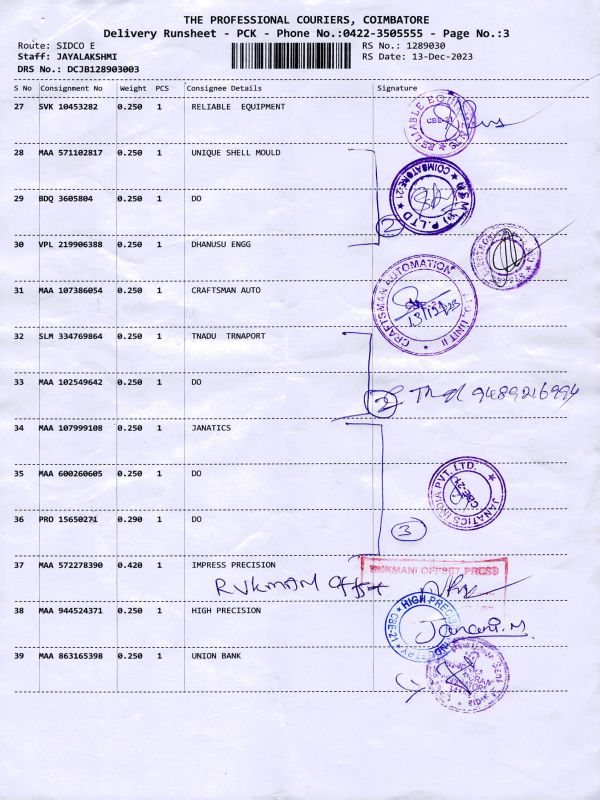 THE PROFESSIONAL COURIERS, COIMBATORE
Delivery Runsheet - PCK - Phone No.:0422-3505555 - Page No.:3
Route: SIDCO E RS No.: 1289030
Staff: JAYALAKSHMI RS Date: 13-Dec-2023
DRS No.: DCJB128903003
S No Consignment No Weight PCS Consignee Details Signature
27 SVK 10453282 0.250 1 RELIABLE EQUIPMENT
RELIABLE CBE-21
28 MAA 571102817 0.250 1 UNIQUE SHELL MOULD
COIMBATORE-21 P.LTD
29 BDQ 3605804 0.250 1 DO
2
30 VPL 219906388 0.250 1 DHANUSU ENGG
31 MAA 107386054 0.250 1 CRAFTSMAN AUTO
CRAFTSMAN AUTOMATION UNIT II
32 SLM 334769864 0.250 1 TNADU TRNAPORT
33 MAA 102549642 0.250 1 DO
2 9489216994
34 MAA 107999108 0.250 1 JANATICS
35 MAA 600260605 0.250 1 DO
JANATICS INDIA PVT. LTD.
36 PRO 15650271 0.290 1 DO
3
37 MAA 572278390 0.420 1 IMPRESS PRECISION
RUKMANI OFFSET PRESS
38 MAA 944524371 0.250 1 HIGH PRECISION
HIGH CBE-21
Janani.M
39 MAA 863165398 0.250 1 UNION BANK